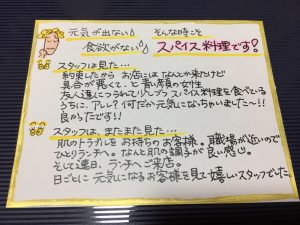 元気が出ない そんな時こそ
食欲がない スパイス料理です!
スタッフは見た…
約束したから お店にはなんとか来たけど
具合が悪くて、と青い顔の女性
友人達につられてリしプつスパイス料理を食べている
うちに、アレ?何だか元気になっちゃいました~!!
良かったです!!
スタッフは、またまた見た…
肌のトラブルをお持ちのお客様。職場が近いので
ひとりランチへ。なんと肌の調子が良い感じ。
そして連日、ランチへご来店。
日ごとに元気になるお客様を見て嬉しいスタッフでした。